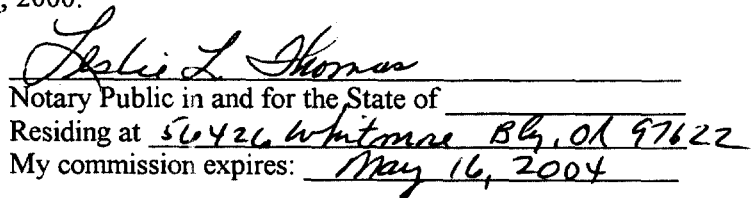 , 2000.
Leslie L. Thomas
Notary Public in and for the State of
Residing at 56426 Whitmore Bly, OR 97622
My commission expires: May 16, 2004